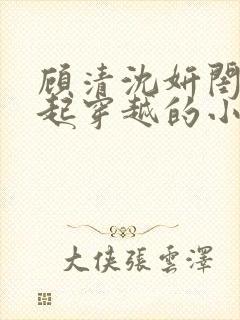 顾清沈妍閨
起穿越的小
大侠張雲澤